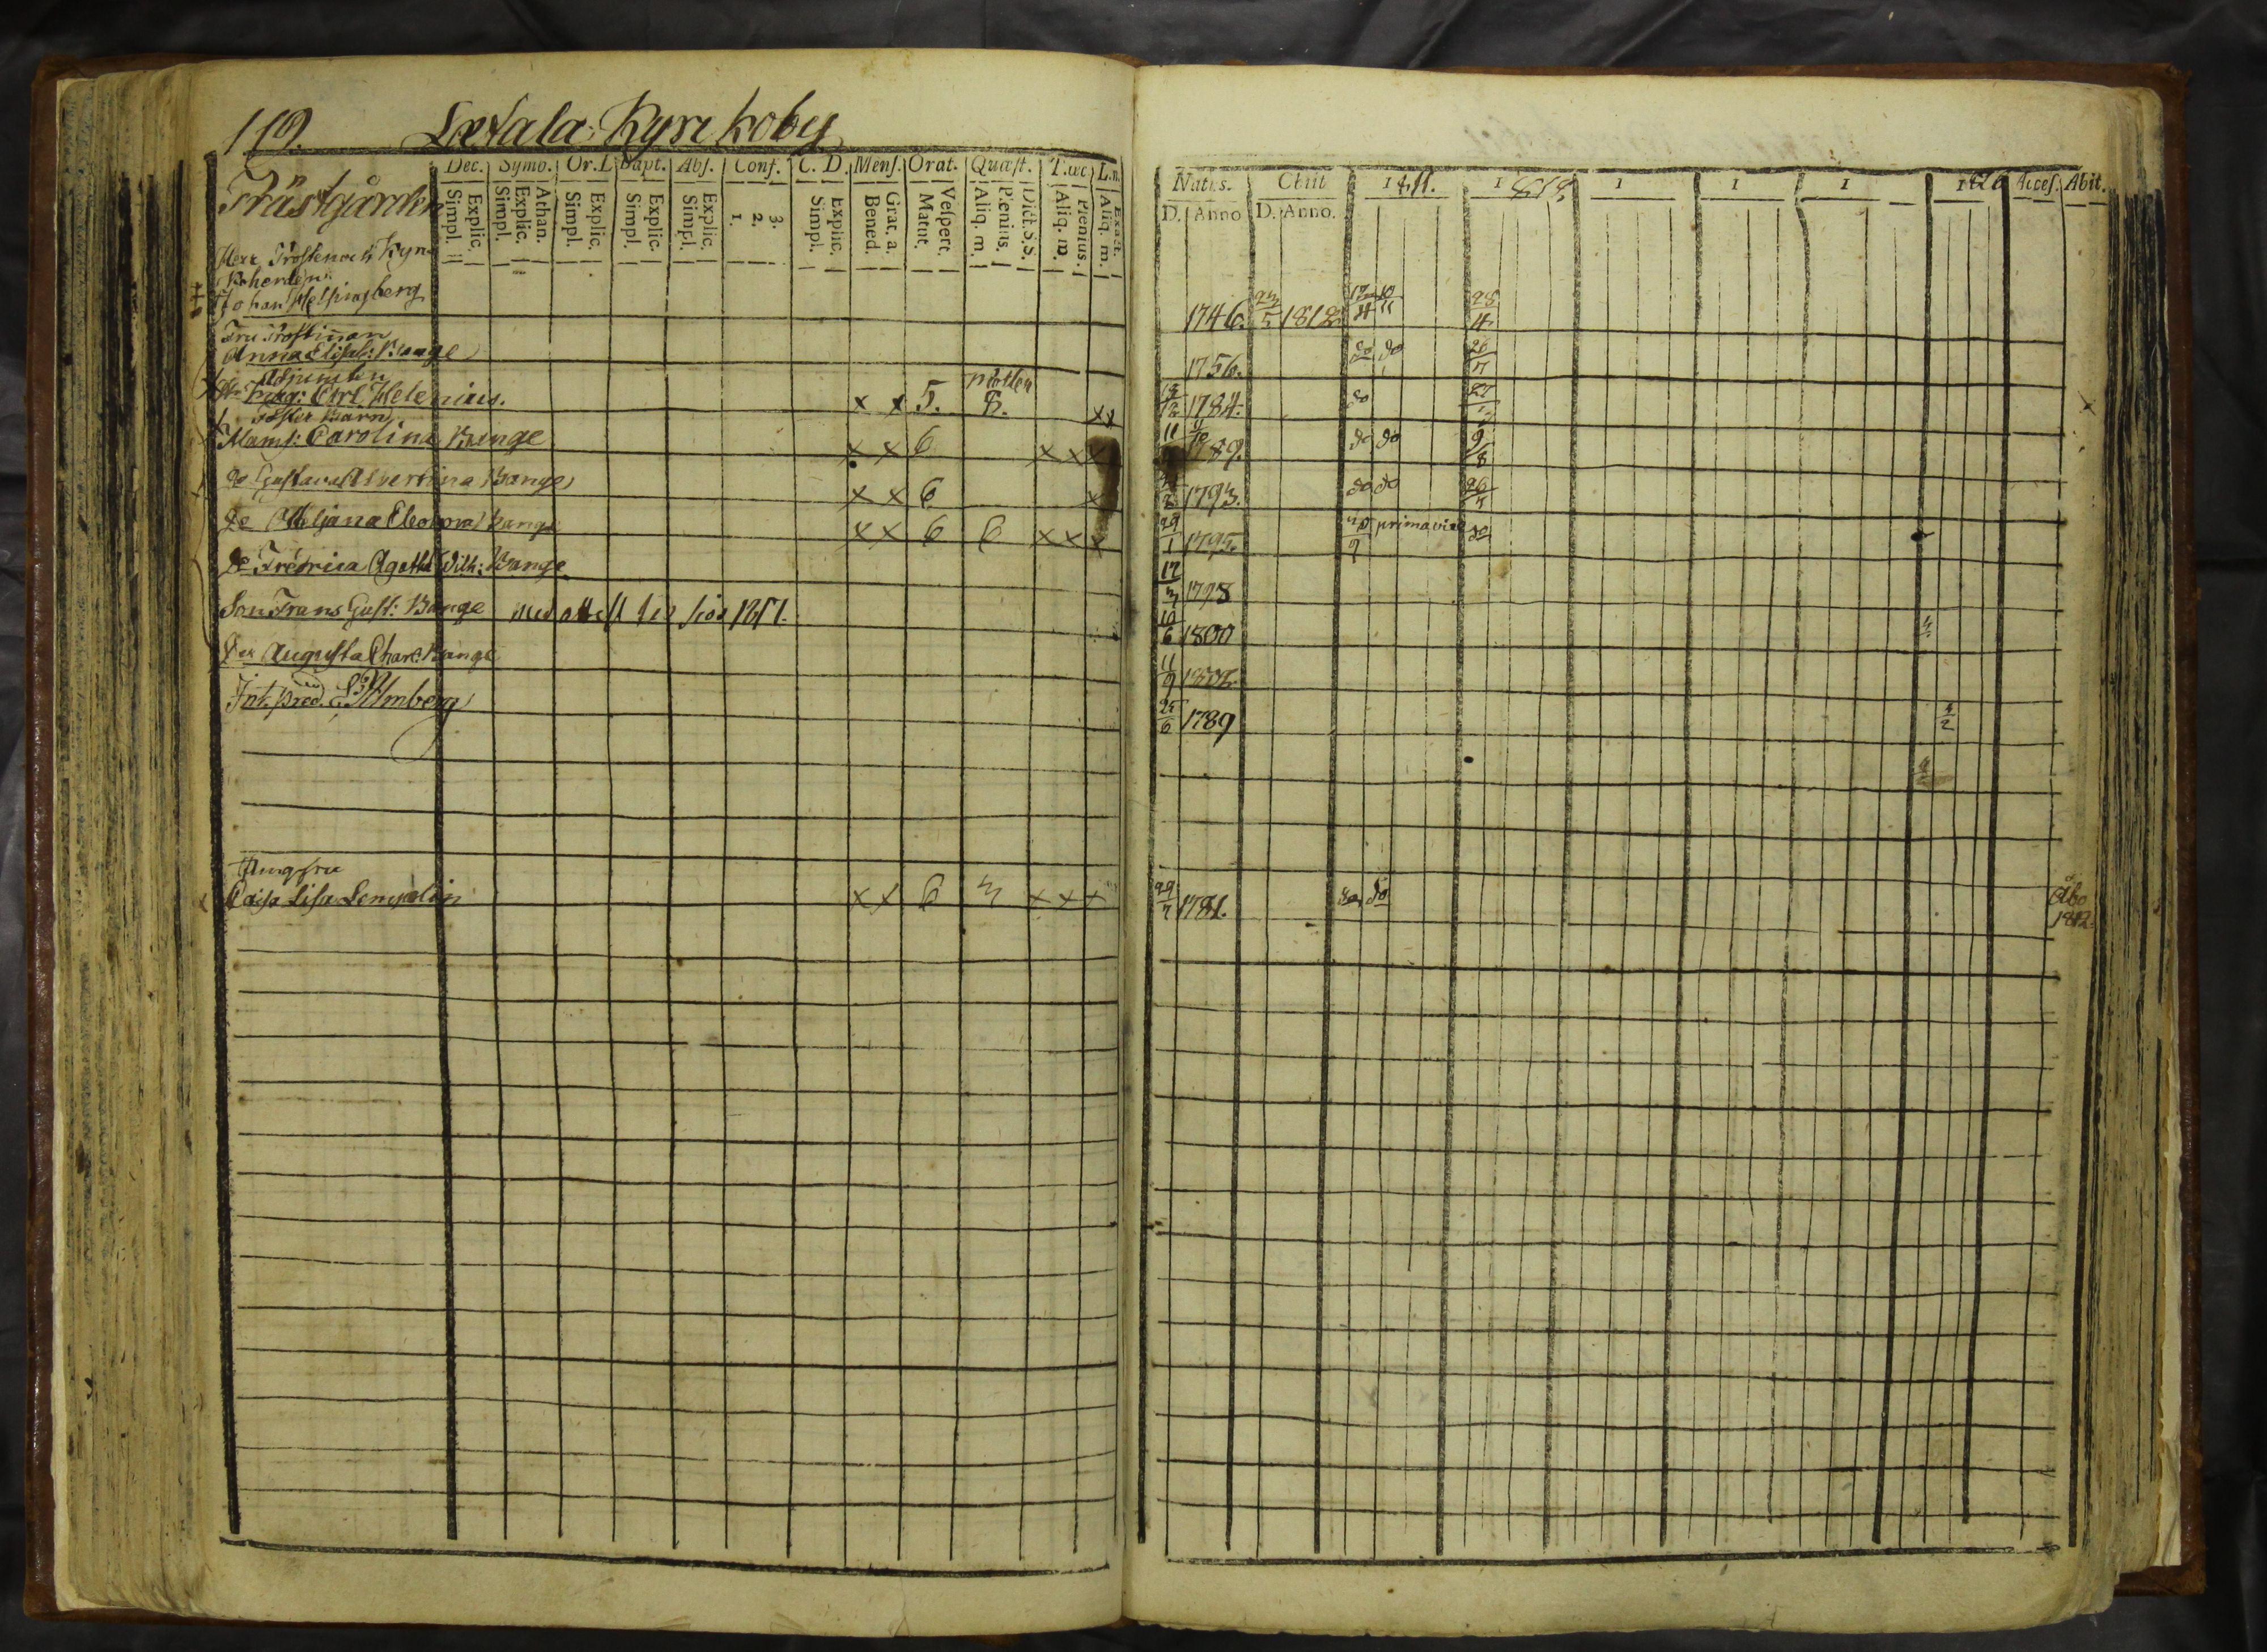 119. Letala Kyrckoby
Dec. Symb. Or.D. Bapt. Abs. Conf. C. D. Mens. Orat. Quæst. T.æc. L.n.
Explic. Simpl. Athan. Explic. Simpl. Explic. Simpl. Explic. Simpl. Explic. Simpl. 3. 2. 1. Explic. Simpl. Grat. a. Bened. Vespert. Matut. Dict. S.S. Plenius. Aliq. m. Plenius. Aliq. m. Exact. Aliq. m.
Prästgården
Herr Prosten och Kyrc
koherden
Johan Helsingberg
Fru Prostinnan
Anna Elisab: Bange
Adjuncten
Mag: Carl Helenius. x x 5. 8. xx
Foster Barn
Mams: Carolina Bange x x 6 x x x
do Gustava Albertina Bange x x 6 x
do Othljana Eleonora Bange x x 6 6 x x x
do Fredrica Agatha Wilh: Bange
Son Frans Gust: Bange med attest
do Augusta Charl: Bange
Int. pred. Almberg
Jungfru
Caisa Lisa Lempelin x x 6 3 x x x
Natus. Obiit 1811. 1813 1 1 1 1826 Acces. Abit.
D. Anno D. Anno.
1746. 23/5 1812 28/4
1756. do do 26/7
13/12 1784. do 27
11 1789. do do 9/8
1793. do do 26/7
29/1 1795. primavice do
17/3 1798
10/6 1800
11/9 1802.
25/6 1789 4/2
29/7 1781. do do Åbo
1812.